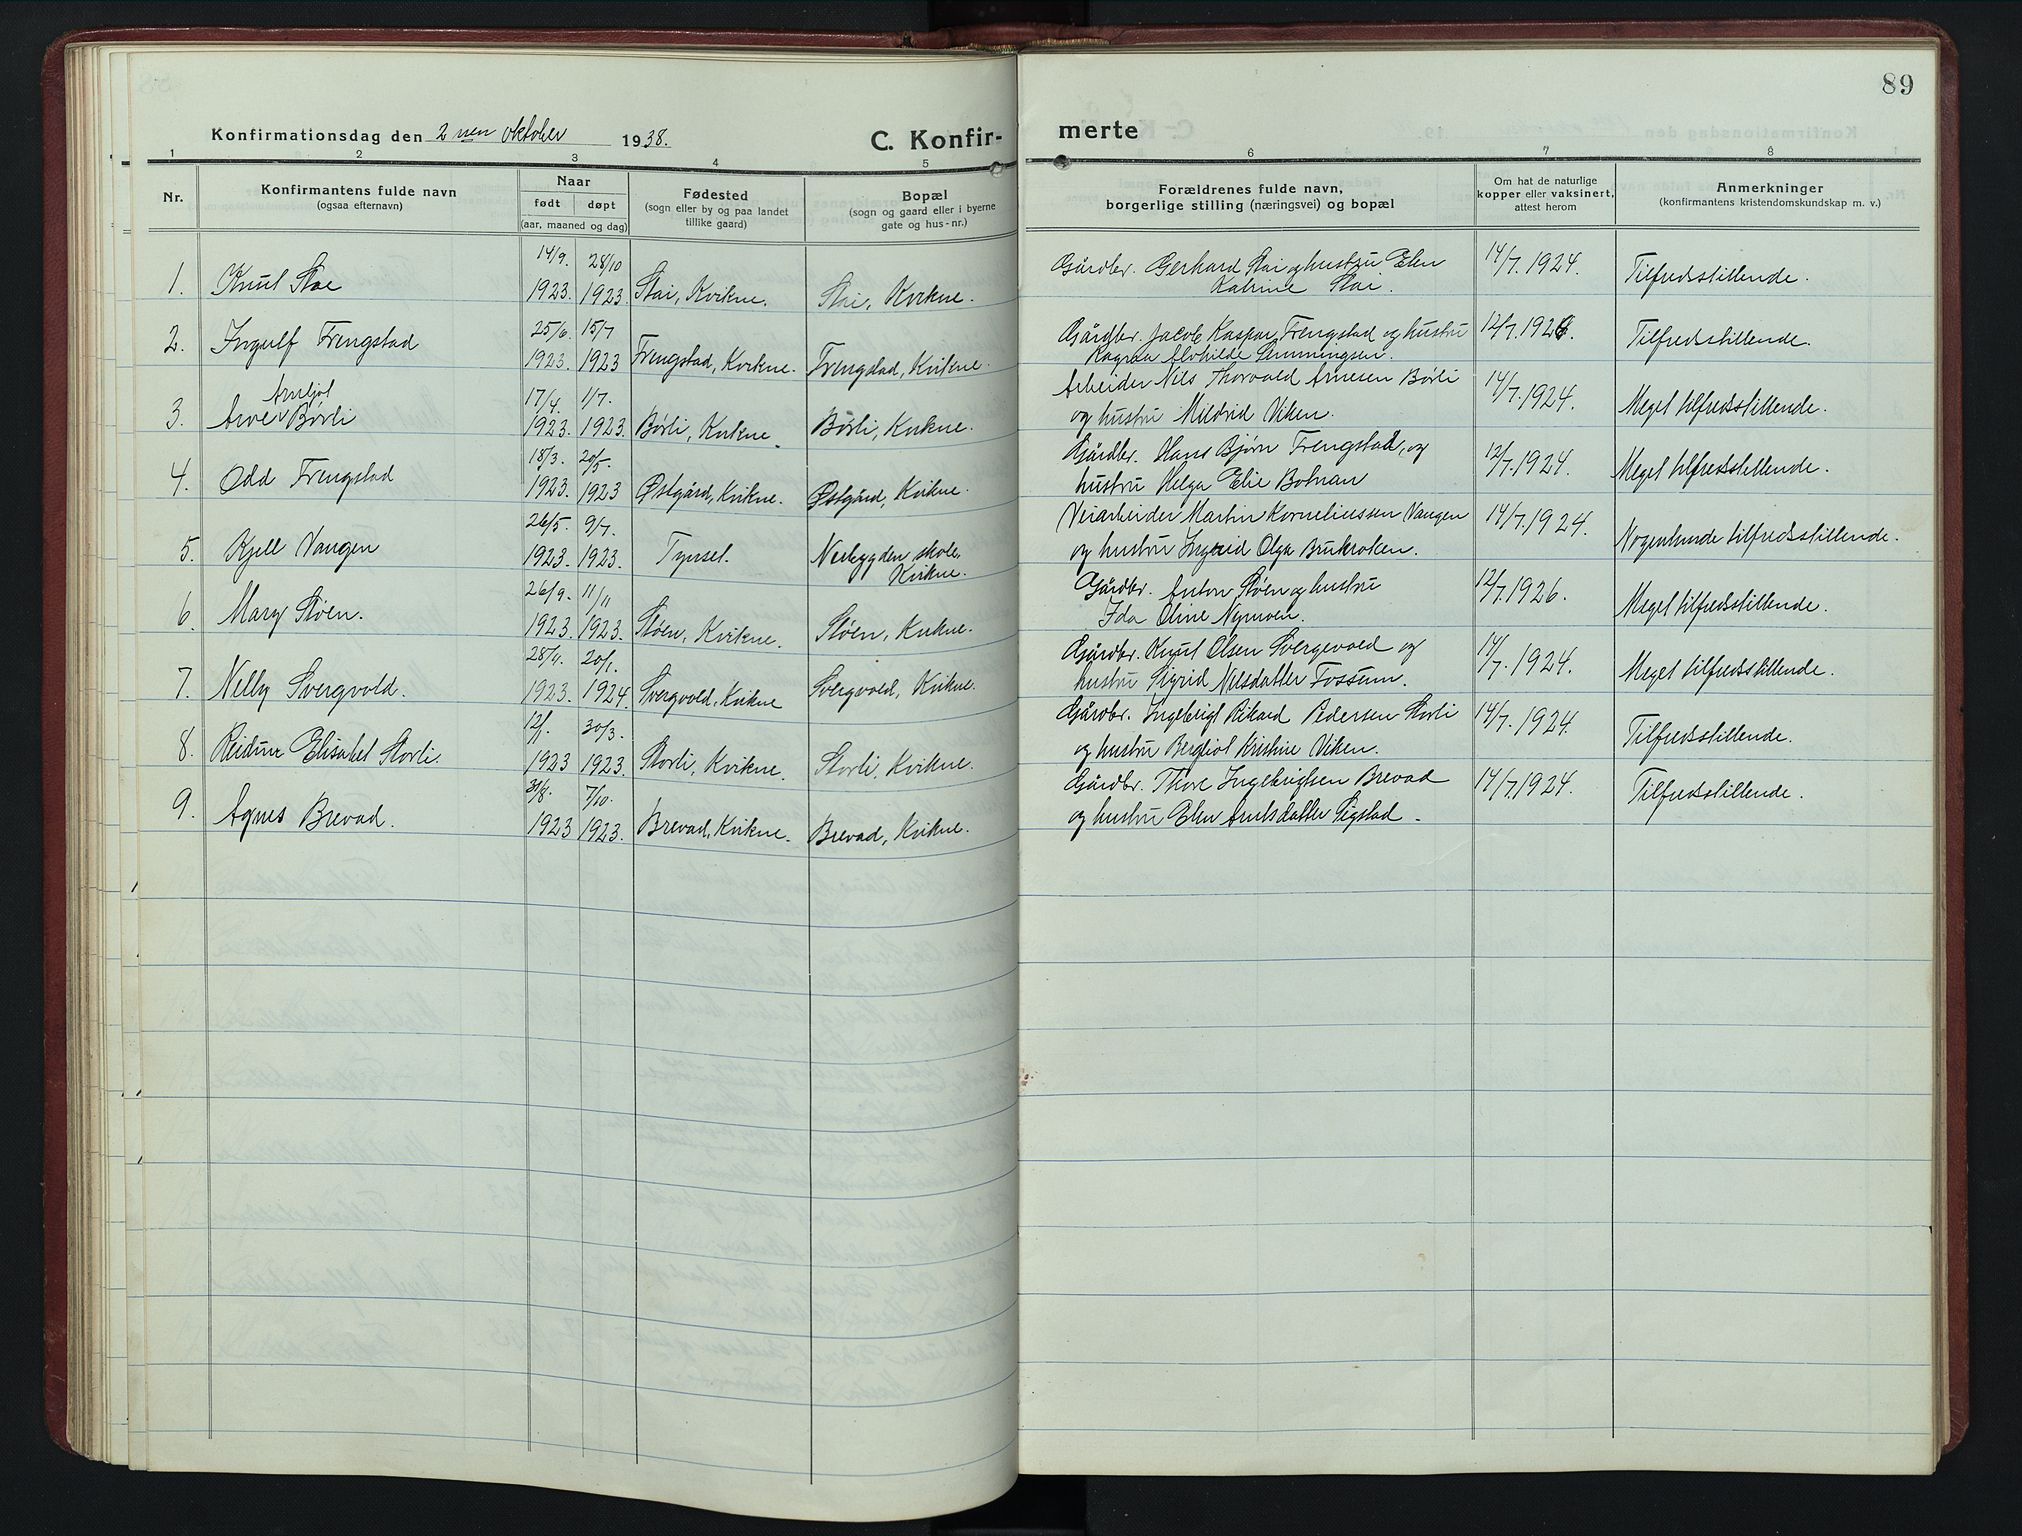 89
Konfirmationsdag den 2 nen oktober 1938.
C. Konfir-
merte
1 2 3 4 5 6 7 8
Nr.
Konfirmantens fulde navn
(ogsaa efternavn)
Naar
født døpt
(aar, maaned og dag)
Fødested
(sogn eller by og paa landet
tillike gaard)
Bopæl
(sogn og gaard eller i byerne
gate og hus-nr.)
Forældrenes fulde navn,
borgerlige stilling (næringsvei) og bopæl
Om hat de naturlige
kopper eller vaksinert,
attest herom
Anmerkninger
(konfirmantens kristendomskundskap m. v.)
14/9. 28/10 Gårdbr. Gerhard Stai og hustru Elen 14/7. 1924.
1. Knut Stae 1923. 1923. Stai, Kvikne. Stai, Kvikne. Katrine Stai. Tilfredsstillende.
25/6. 15/7 Gårdbr. Jacob Kaspar Frengstad og hustru 12/7. 1926.
2. Ingulf Frengstad 1923. 1923 Frengstad, Kvikne. Frengstad, Kvikne. Ragna Alvhilde Semmingsen. Tilfredsstillende.
Arnljot 17/4. 1/7. Arbeider Nils Thorvald Arnesen Børli 14/7. 1924.
3. Arve Børli 1923. 1923. Børli, Kvikne. Børli, Kvikne. og hustru Mildrid Viken. Meget tilfredsstillende.
18/3. 20/5. Gårdbr. Hans Bjørn Frengstad, og 12/7. 1924.
4. Odd Frengstad 1923. 1923 Østgård, Kvikne. Østgård, Kvikne. hustru Helga Elie Botnan Meget tilfredsstillende.
26/5. 9/7. Veiarbeider Martin Korneliussen Vangen 14/7. 1924.
5. Kjell Vangen 1923. 1923. Tynset. Nerbygden skole, Kvikne. og hustru Ingrid Olga Brukroken. Nogenlunde tilfredsstillende.
26/9. 11/11 Gårdbr. Anton Støen og hustru 12/7. 1926.
6. Mary Støen. 1923. 1923. Støen, Kvikne. Støen, Kvikne. Ida Oline Nymoen. Meget tilfredsstillende.
28/11. 20/1. Gårdbr. Knut Olsen Svergevold og 14/7. 1924.
7. Nelly Svergvold. 1923. 1924 Svergvold, Kvikne Svergvold, Kvikne. hustru Sigrid Nilsdatter Fossum. Meget tilfredsstillende.
12/1. 30/3. Gårdbr. Ingebrigt Rikard Pedersen Storli 14/7. 1924.
8. Reidun Elisabet Storli. 1923 1923. Storli, Kvikne. Storli, Kvikne. og hustru Bergljot Kristine Viken. Tilfredsstillende.
31/8. 7/10. Gårdbr. Thore Ingebrigtsen Brevad 14/7. 1924.
9. Agnes Brevad. 1923 1923. Brevad, Kvikne. Brevad, Kvikne. og hustru Elen Arntsdatter Sigstad. Tilfredsstillende.